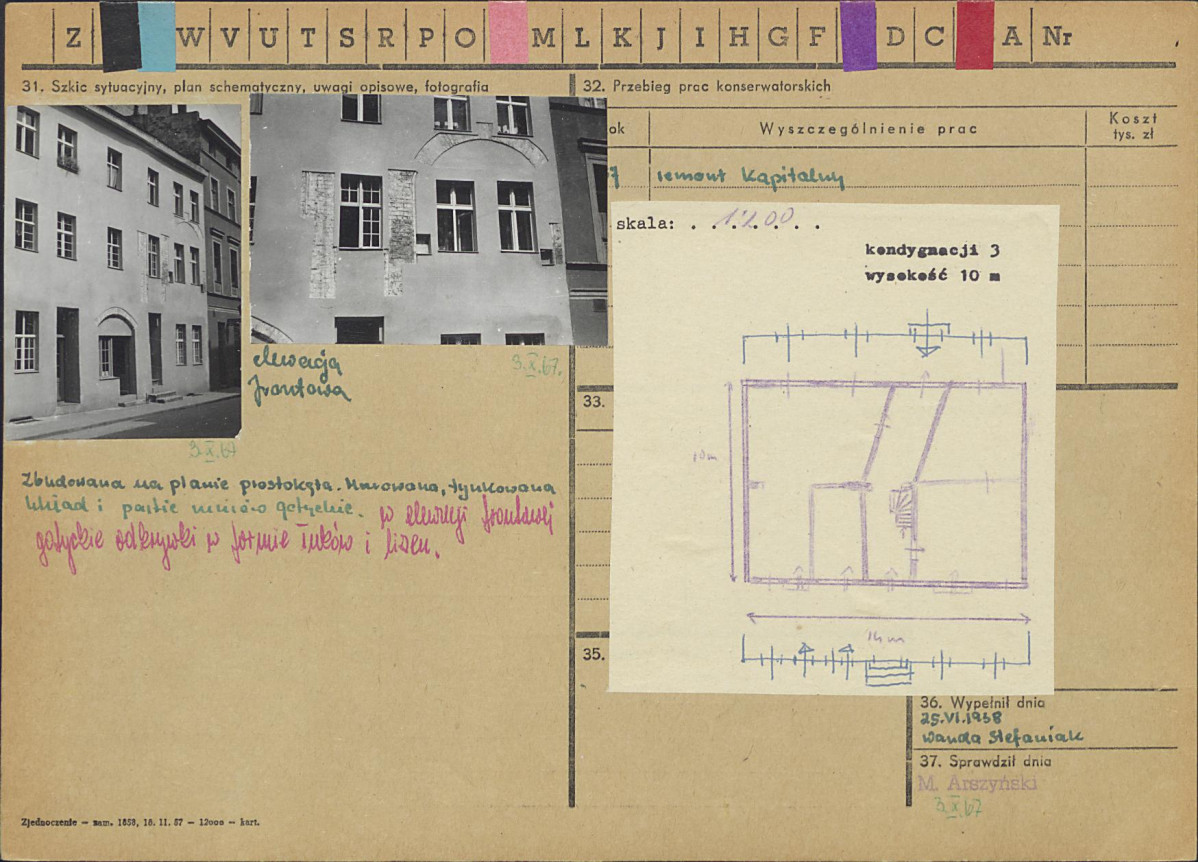 Z W V U T S R P O M L K J I H G F D C A Nr
31. Szkic sytuacyjny, plan schematyczny, uwagi opisowe, fotografia
32. Przebieg prac konserwatorskich
ok
Wyszczególnienie prac
Koszt
tys. zł
7 remont kapitalny
skala: . 1:200 . . .
kondygnacji 3
wysokość 10 m
elewacja
frontowa
3.X.67.
3.X.67
33.
10m
Zbudowana na planie prostokąta. Murowana, tynkowana
układ i partie murów gotyckie. w elewacji frontowej
gotyckie odkrywki w formie łuków i lizen.
14m
35.
36. Wypełnił dnia
25.VI.1958
Wanda Stefaniak
37. Sprawdził dnia
M. Arszyński
3.X.67
Zjednoczenie — zam. 1858, 18. 11. 57 — 12000 — kart.